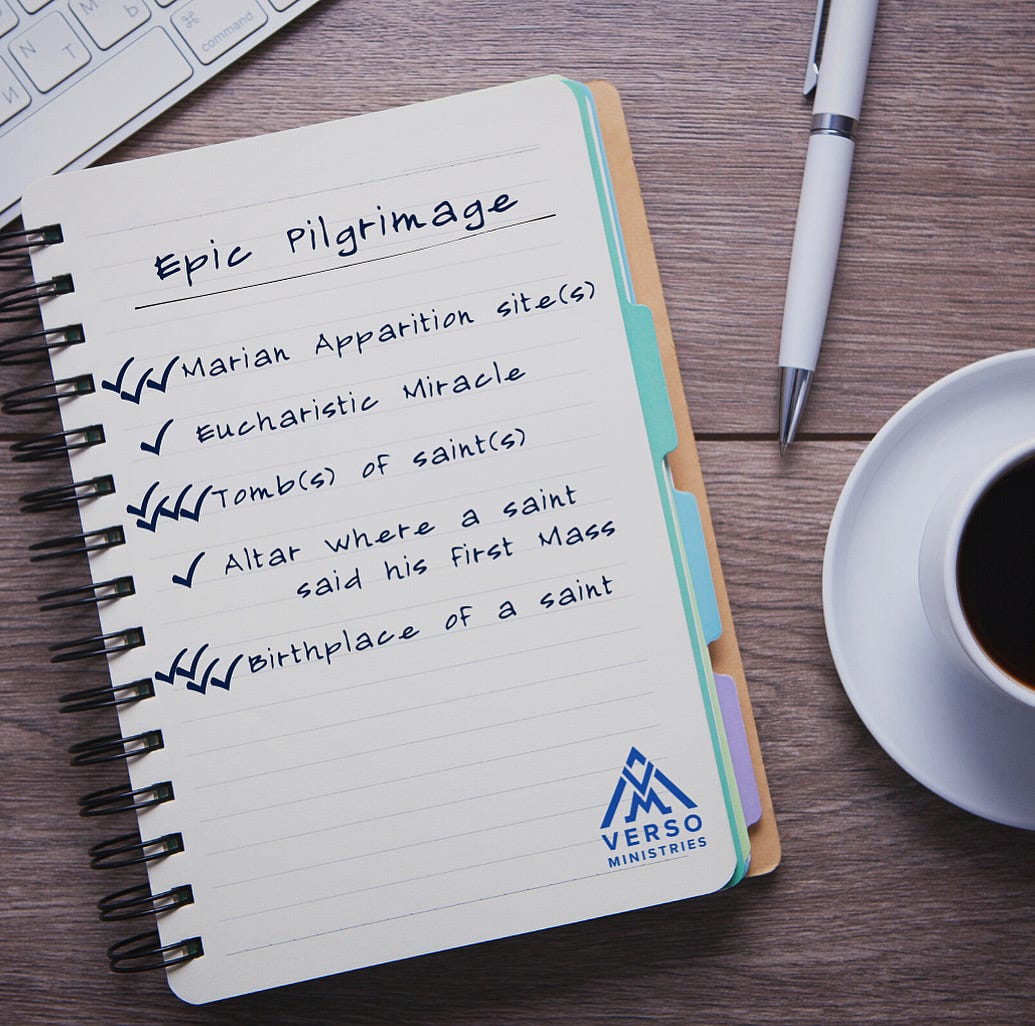 M Ь
N T
И
⌘
command
Epic Pilgrimage
✓✓✓ Marian Apparition site(s)
✓ Eucharistic Miracle
✓✓✓✓ Tomb(s) of saint(s)
✓ Altar where a saint
said his first Mass
✓✓✓✓ Birthplace of a saint
VERSO
MINISTRIES